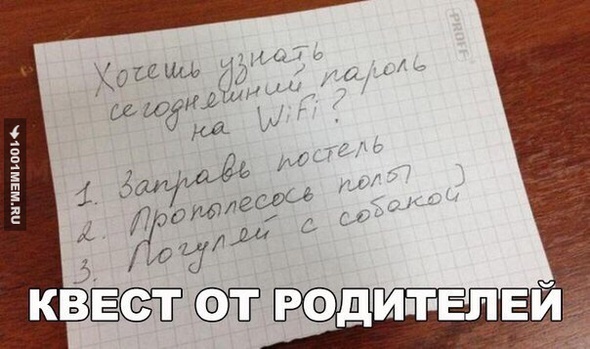 PROFF
Хочешь узнать
сегодняшний пароль
на WiFi?
1. Заправь постель
2. Пропылесось полы
3. Погуляй с собакой
1001MEM.RU
КВЕСТ ОТ РОДИТЕЛЕЙ